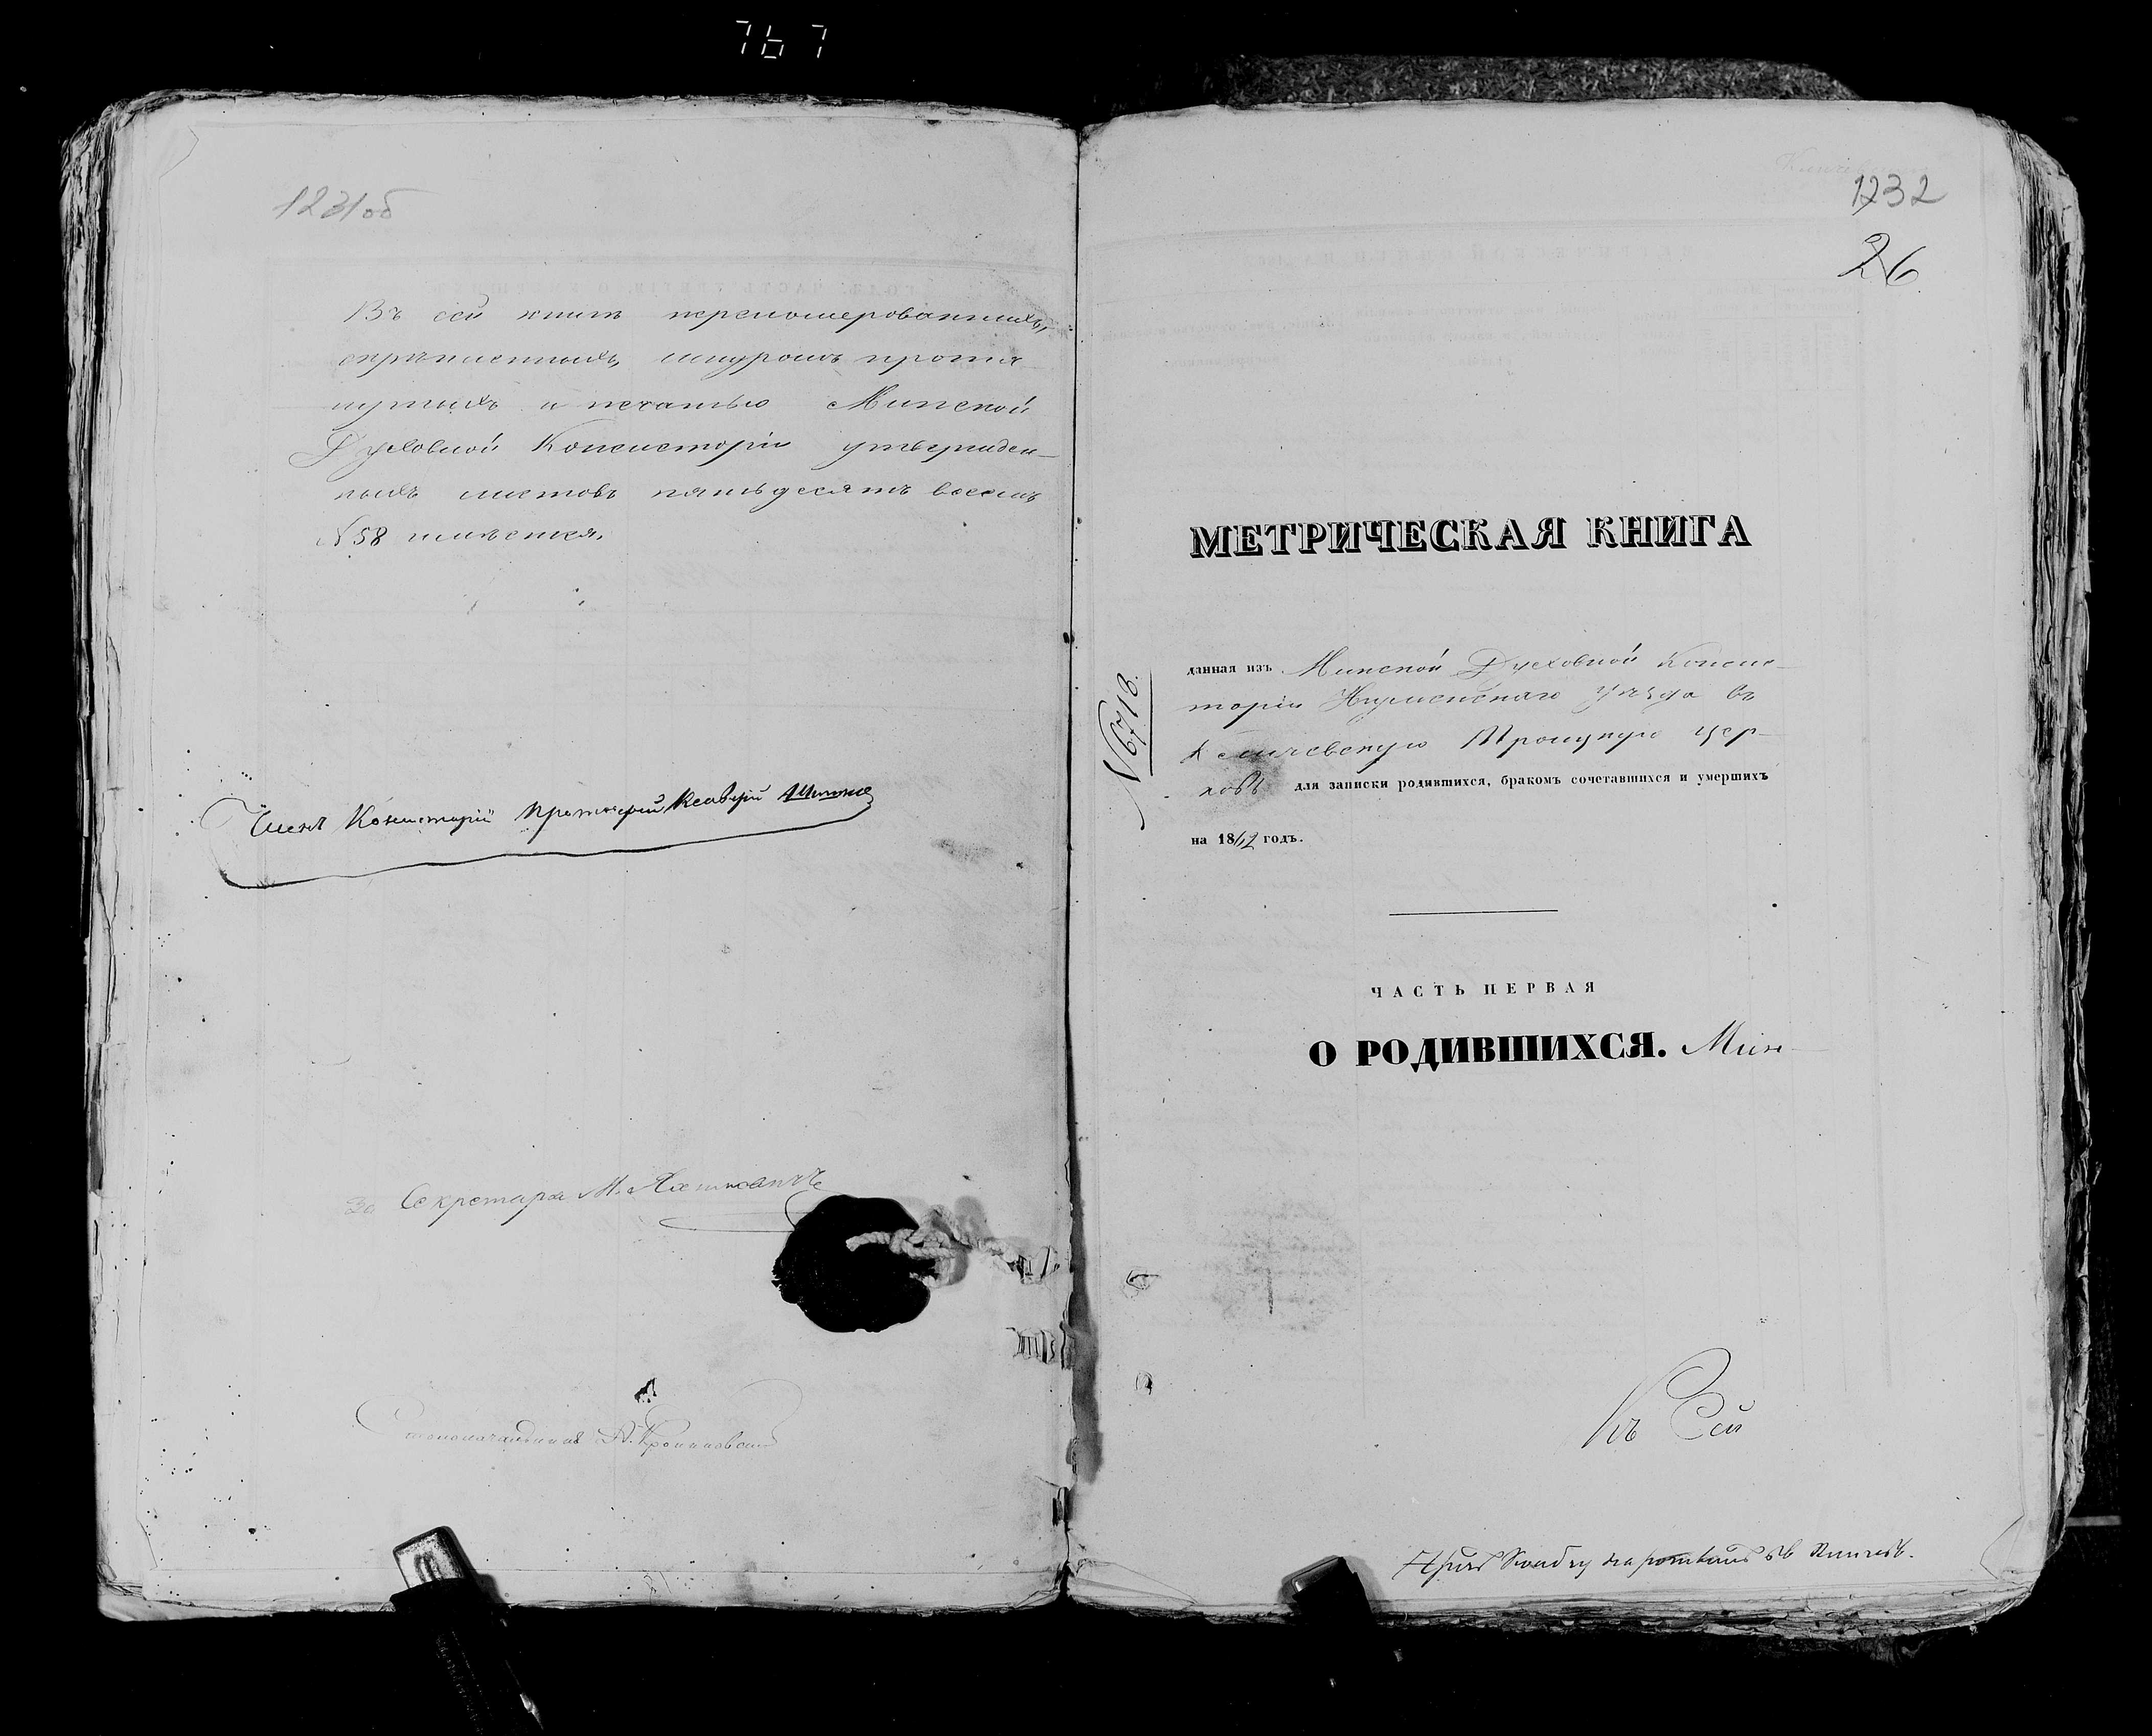 767
1231об
Въ сей книгѣ перенумерованныхъ,
скрѣпленныхъ, шнуромъ протя-
нутыхъ и печатью Минской
Духовной Консисторіи утвержден-
ныхъ листовъ пятьдесятъ восемь
№ 58 имѣется.
Членъ Консисторіи Протоіерей
За Секретаря М.
Столоначальникъ
1232
26
МЕТРИЧЕСКАЯ КНИГА
№ 6718.
данная изъ Минской Духовной Консис-
торіи Игуменскаго уѣзда въ
Троицкую цер-
ковь для записки родившихся, бракомъ сочетавшихся и умершихъ
на 1862 годъ.
ЧАСТЬ ПЕРВАЯ
О РОДИВШИХСЯ. Мин-
Къ Сей